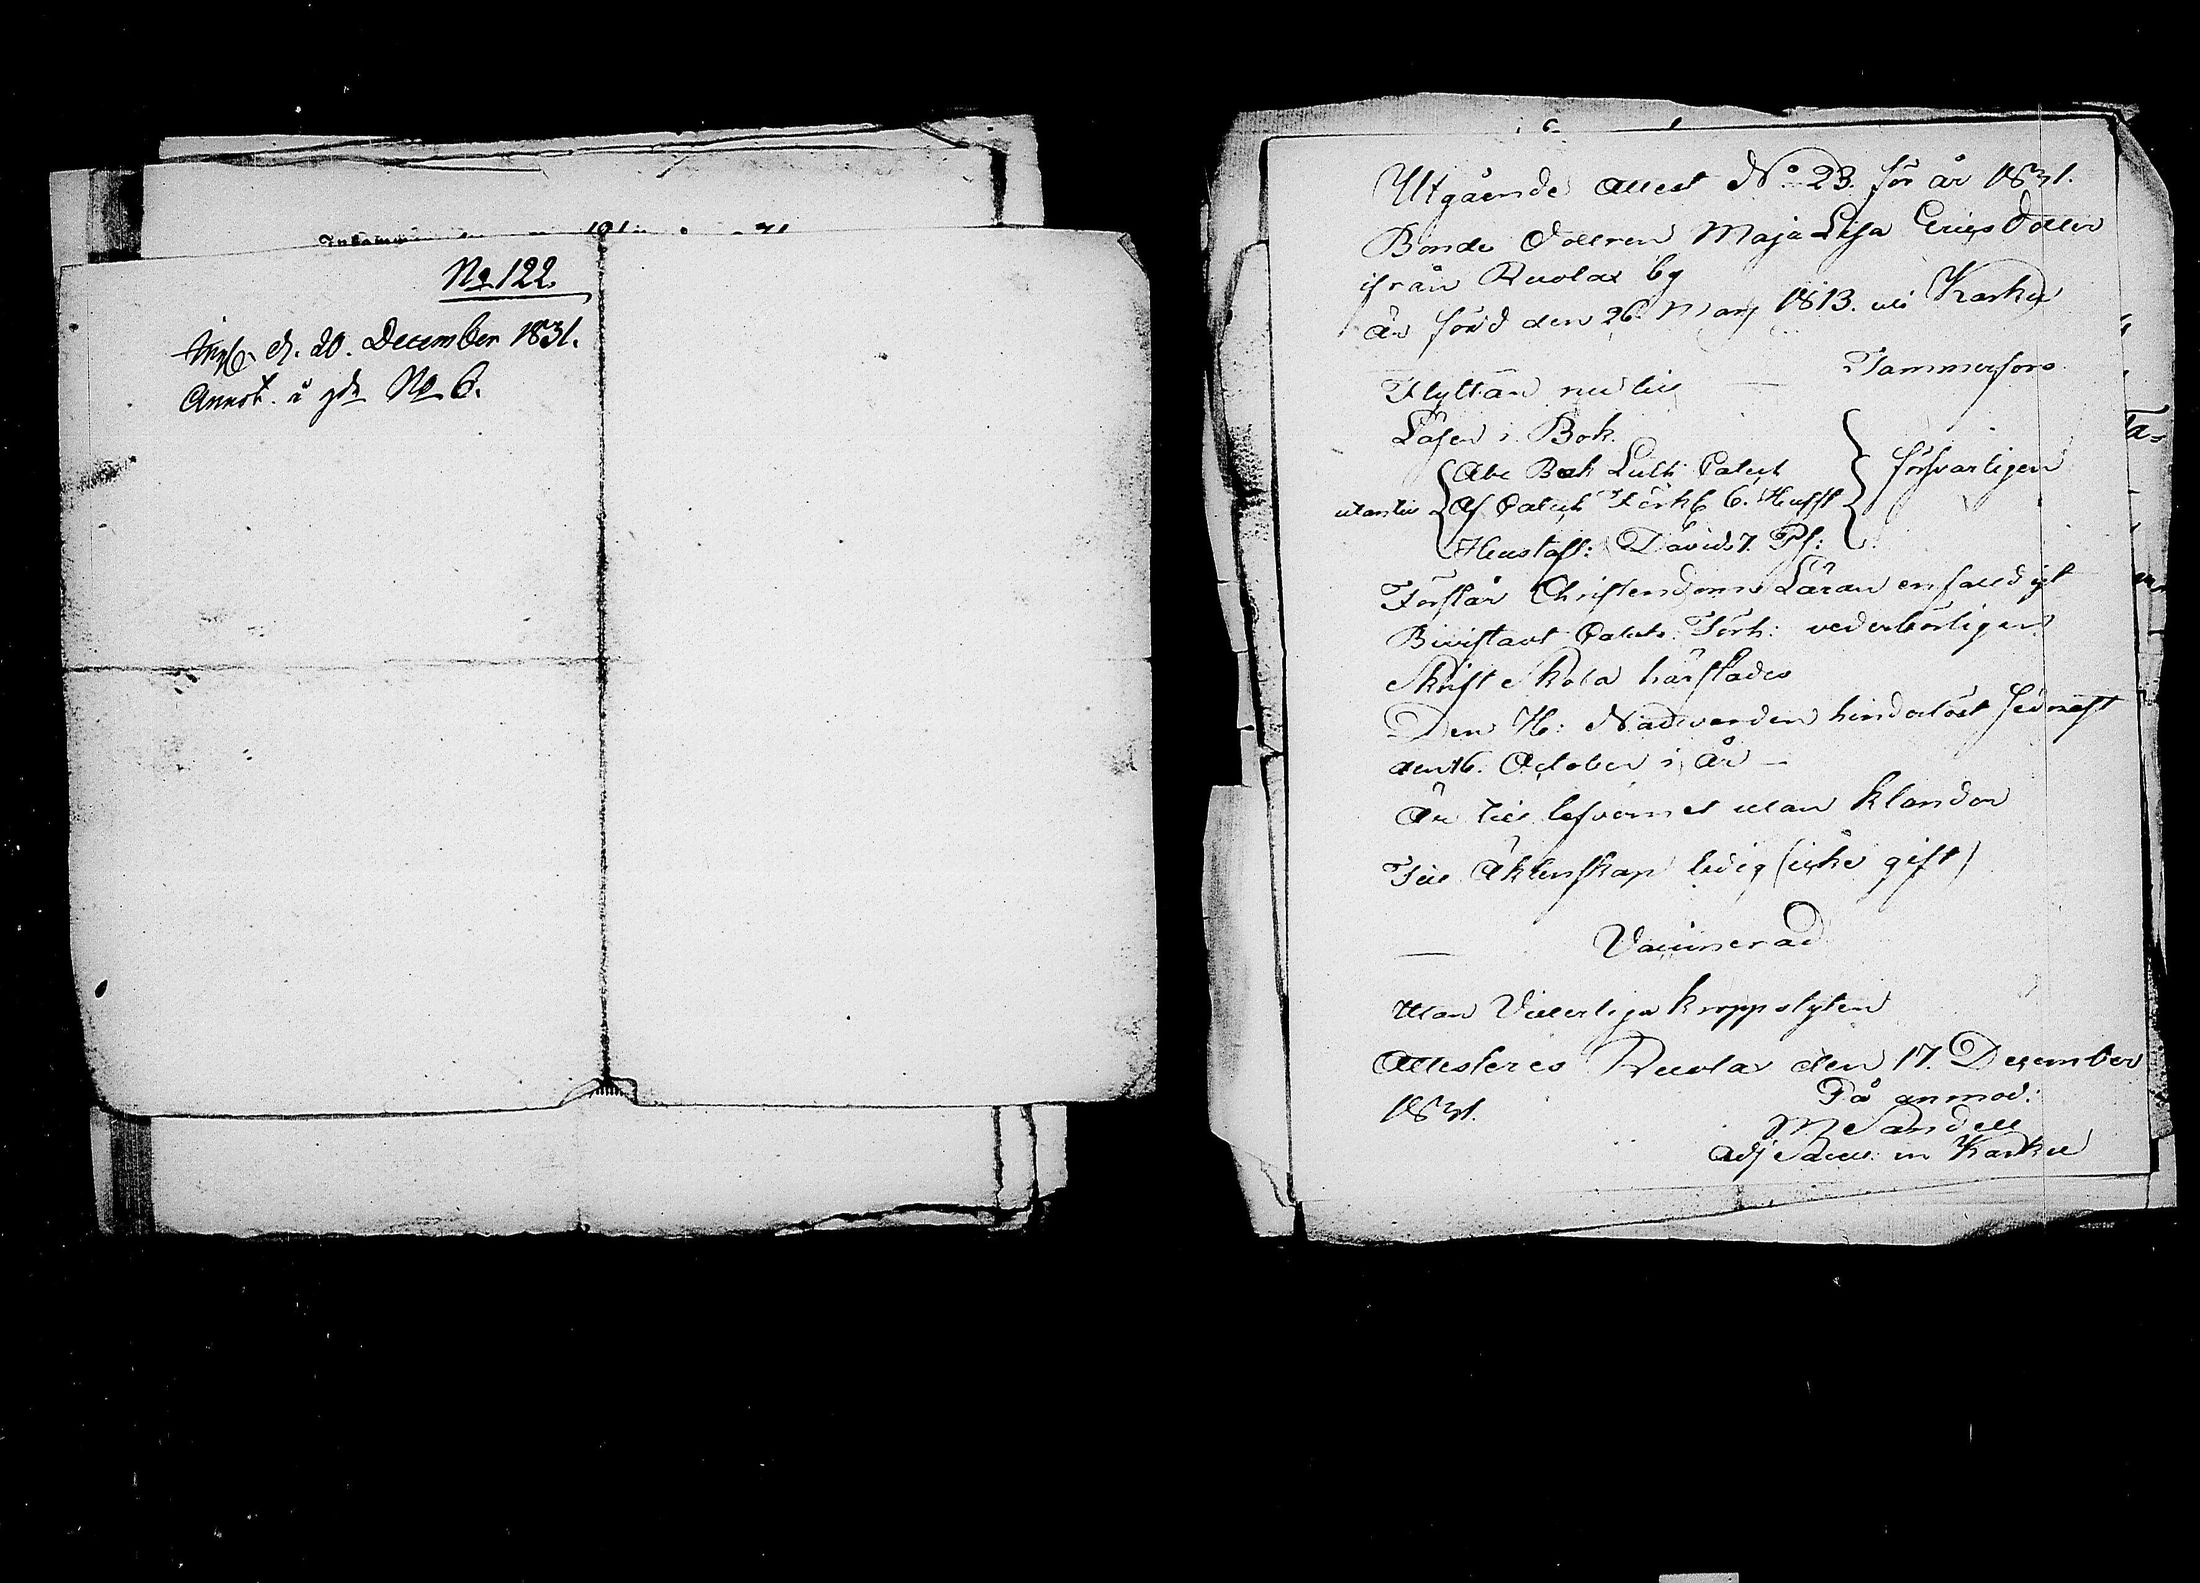 No 122.
d. 20. December 1831.
Annot. å gde No 6.
Utgående Attest No 23. för år 1831.
Bonde Dottren Maja Lisa Ericsdotter
ifrån Ruolax by
är född den 26. Marj 1813. uti Karku
Flyttar nu till — Tammerfors
Läser i Bok.
utantill Abc Bok Luth: Catech försvarligen
Af Catech Förkl 6. Hufst
Hustafl: Davids 7. Ps:
Förstår Christendoms Läran enfaldigt
Bivistadt Catech: Förh: vederbörligen
Skrift Skola härstädes
Den H: Nadwarden hinderlöst sednast
den 16. October i år —
Är till lefvernet utan klander
Till Äktenskap ledig (icke gift)
— Vaccinerad
Utan Vitterliga kroppslyten
Attesteres Ruolax den 17. December
1831.
På anmod:
M Sandell
Adj Sacell: in Karku